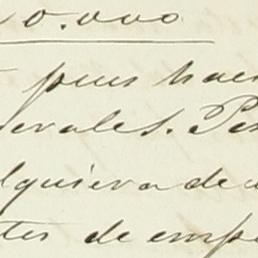 0.000
pues hace
erales. Pe
lquiera de
tes de emp